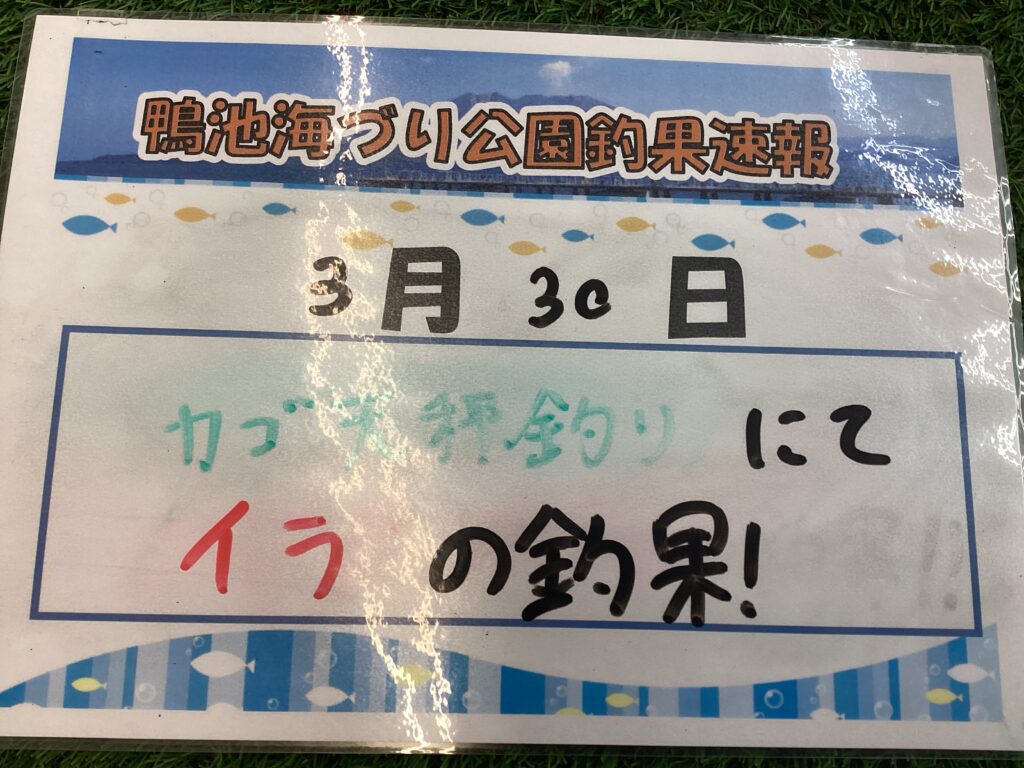 鴨池海づり公園釣果速報
3月30日
カゴ天秤釣りにて
イラの釣果!